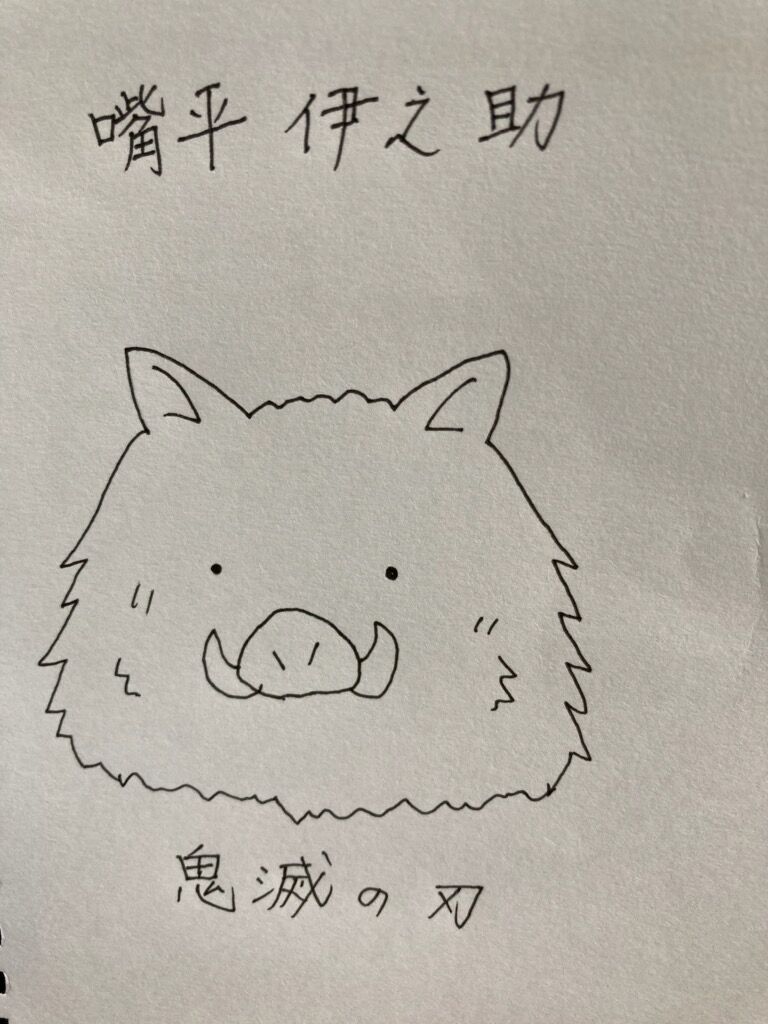 嘴平 伊之助
鬼滅の刃